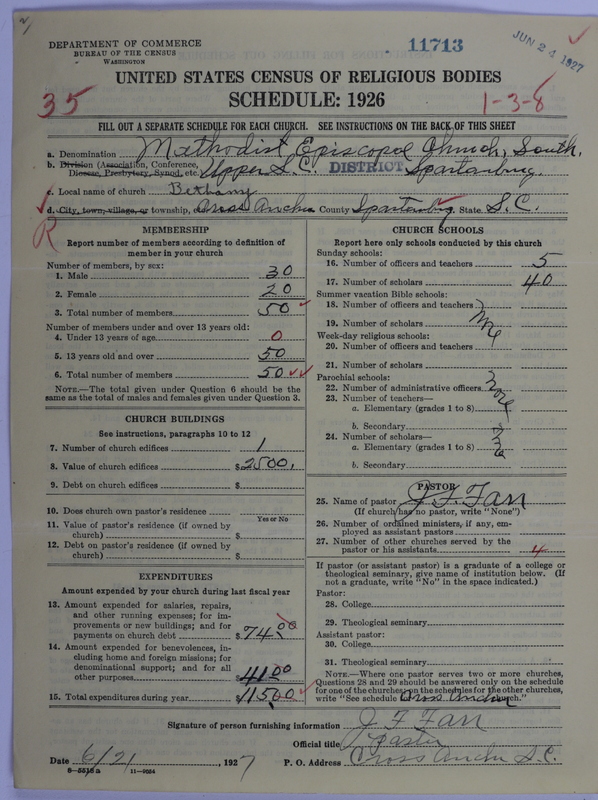 DEPARTMENT OF COMMERCE
BUREAU OF THE CENSUS
WASHINGTON
11713
JUN 24 1927
UNITED STATES CENSUS OF RELIGIOUS BODIES
35
SCHEDULE: 1926
1-3-8
FILL OUT A SEPARATE SCHEDULE FOR EACH CHURCH. SEE INSTRUCTIONS ON THE BACK OF THIS SHEET
a. Denomination Methodist Episcopal Church, South.
b. Division (Association, Conference, Diocese, Presbytery, Synod, etc. Upper S.C. DISTRICT Spartanburg.
c. Local name of church Bethany
d. City, town, village, or township, etc. Cross Anchor County Spartanburg. State S.C.
R
MEMBERSHIP
Report number of members according to definition of
member in your church
Number of members, by sex:
1. Male 30
2. Female 20
3. Total number of members 50
Number of members under and over 13 years old:
4. Under 13 years of age 0
5. 13 years old and over 50
6. Total number of members 50
NOTE.—The total given under Question 6 should be the
same as the total of males and females given under Question 3.
CHURCH BUILDINGS
See instructions, paragraphs 10 to 12
7. Number of church edifices 1
8. Value of church edifices $2500.
9. Debt on church edifices $
10. Does church own pastor's residence
Yes or No
11. Value of pastor's residence (if owned by
church) $
12. Debt on pastor's residence (if owned by
church) $
EXPENDITURES
Amount expended by your church during last fiscal year
13. Amount expended for salaries, repairs,
and other running expenses; for im-
provements or new buildings; and for
payments on church debt $74.00
14. Amount expended for benevolences, in-
cluding home and foreign missions; for
denominational support; and for all
other purposes $41.00
15. Total expenditures during year $115.00
CHURCH SCHOOLS
Report here only schools conducted by this church
Sunday schools:
16. Number of officers and teachers 5
17. Number of scholars 40
Summer vacation Bible schools:
18. Number of officers and teachers
19. Number of scholars
Week-day religious schools:
20. Number of officers and teachers
21. Number of scholars
Parochial schools:
22. Number of administrative officers
23. Number of teachers—
a. Elementary (grades 1 to 8)
b. Secondary
24. Number of scholars—
a. Elementary (grades 1 to 8)
b. Secondary
PASTOR
25. Name of pastor J. F. Farr
(If church has no pastor, write "None")
26. Number of ordained ministers, if any, em-
ployed as assistant pastors
27. Number of other churches served by the
pastor or his assistants 4
If pastor (or assistant pastor) is a graduate of a college or
theological seminary, give name of institution below. (If
not a graduate, write "No" in the space indicated.)
Pastor:
28. College
29. Theological seminary
Assistant pastor:
30. College
31. Theological seminary
NOTE.—Where one pastor serves two or more churches,
Questions 28 and 29 should be answered only on the schedule
for one of the churches; on the schedules for the other churches,
write "See schedule Cross Anchor church."
Signature of person furnishing information J F Farr
Official title Pastor
Date 6/21, 1927 P. O. Address Cross Anchor S.C.
8-5518a 11-9064